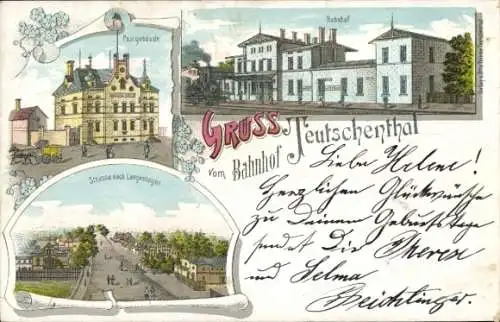 Postgebäude
Bahnhof
GRUSS
vom Bahnhof Teutschenthal
Strasse nach Langenbogen
Liebe Helene!
Herzlichen Glückwünsche
zu Deinem Geburtstage
sendet Dir Theresa
und Selma
Deichtinger.